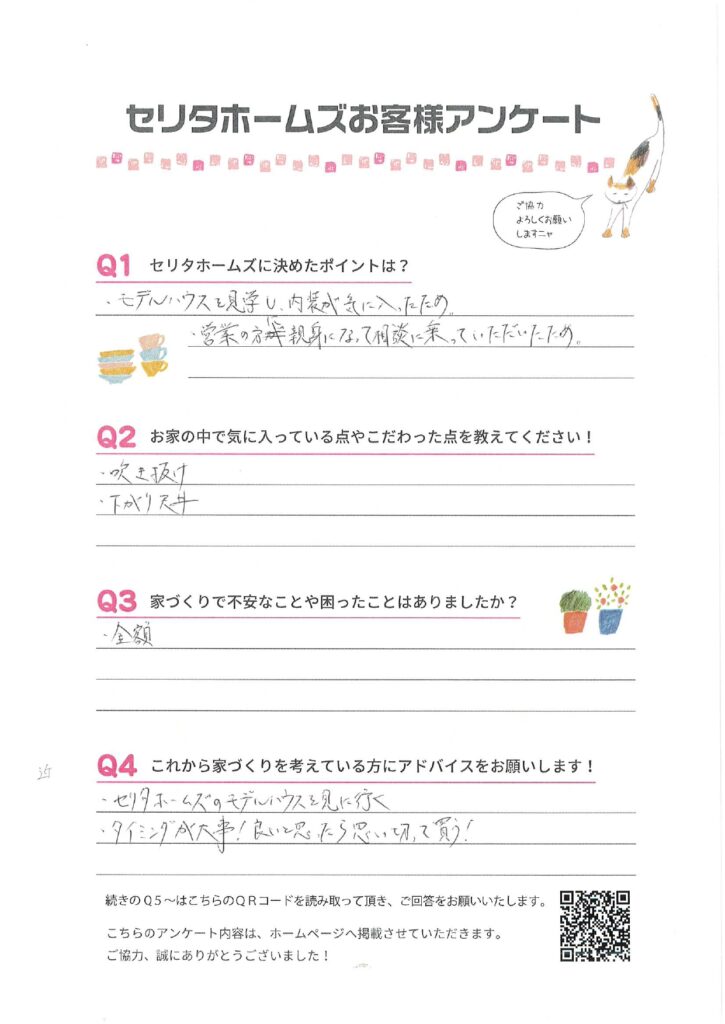 セリタホームズお客様アンケート
ご協力
よろしくお願い
しますニャ
Q1 セリタホームズに決めたポイントは？
・モデルハウスを見学し、内装が気に入ったため。
・営業の方に親身になって相談に乗っていただいたため。
Q2 お家の中で気に入っている点やこだわった点を教えてください！
・吹き抜け
・下がり天井
Q3 家づくりで不安なことや困ったことはありましたか？
・金額
Q4 これから家づくりを考えている方にアドバイスをお願いします！
近
・セリタホームズのモデルハウスを見に行く
・タイミングが大事！良いと思ったら思い切って買う！
続きのＱ５～はこちらのＱＲコードを読み取って頂き、ご回答をお願いいたします。
こちらのアンケート内容は、ホームページへ掲載させていただきます。
ご協力、誠にありがとうございました！